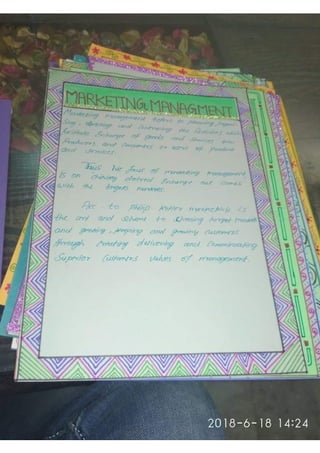 MARKETING MANAGMENT
Marketing management refers to planning, organi-
ing, directing and controlling the activities which
facilitate Exchange of goods and services between
Producers and Consumers or users of product
and services.
Thus the focus of marketing management
is on achieving desired Exchange out comes
with the target markets.
Acc. to Philip Kotler marketing is
the art and science to choosing target markets
and getting, keeping and growing customers
through creating delivering and communicating
Superior Customers values of management.
2018-6-18 14:24